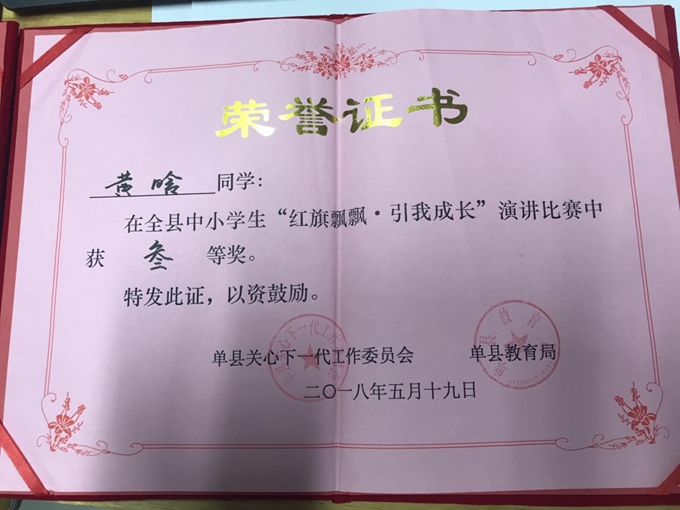 荣誉证书
黄晗 同学：
在全县中小学生“红旗飘飘·引我成长”演讲比赛中
获 叁 等奖。
特发此证，以资鼓励。
单县关心下一代工作委员会 单县教育局
二〇一八年五月十九日